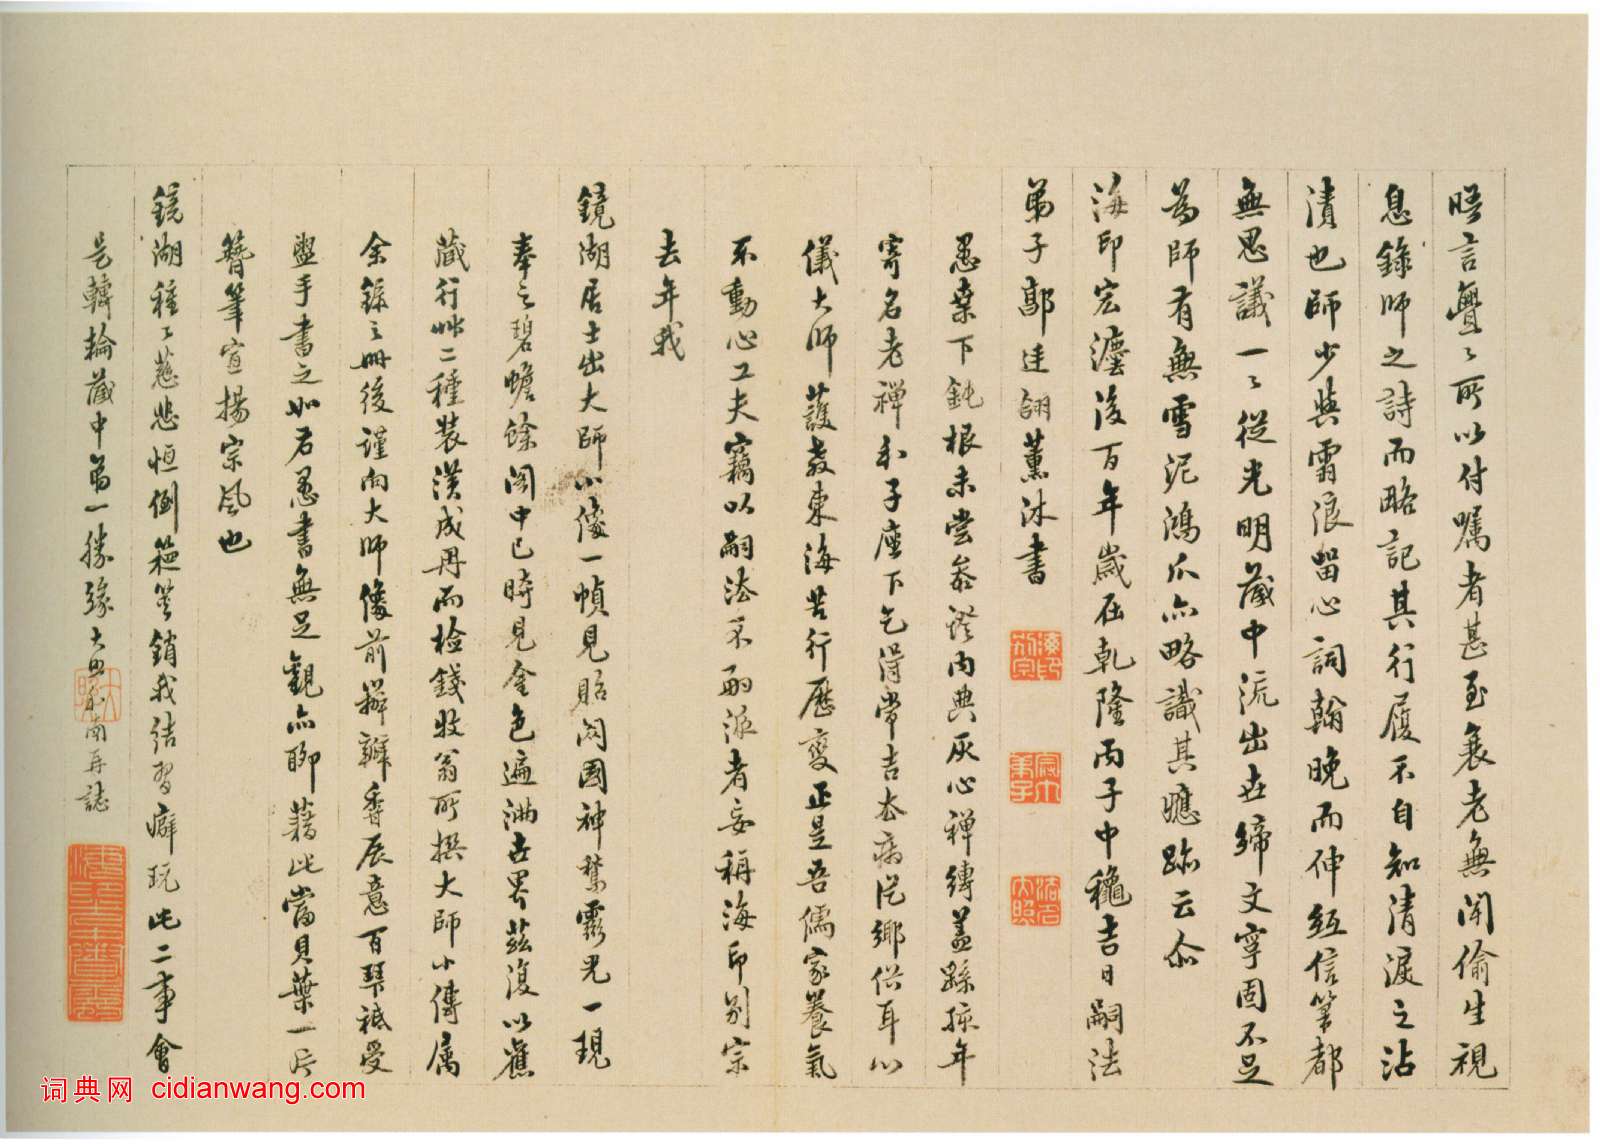 晤言亹〻所以付囑者甚至衰老無聞偷生視
息錄師之詩而略記其行履不自知清淚之沾
漬也師少與雪浪留心詞翰晚而伸紙信筆都
無思議一〻從光明藏中流出世締文字固不足
為師有無雪泥鴻爪亦略識其應跡云尒
海印宏灋後百年歲在乾隆丙子中穐吉日嗣法
弟子鄣廷翎薰沐書
愚棄下鈍根未嘗叅證內典灰心禪縛蓋緣孩年
寄名老禪和子座下乞得常吉衣病從鄉俗耳以
儀大師護教東海苦行歷變正是吾儒家養氣
不動心工夫竊以嗣法不嗣派者妄稱海印別宗
去年我
鏡湖居士出大師小像一幀見貽閟國神鷲靈光一現
奉之碧蟾餘閣中已時見金色遍滿世界茲復以舊
藏行艸二種裝潢成冊而檢錢牧翁所撰大師小傳属
余錄之冊後謹向大師像前辦瓣香展意百拜祗受
盥手書之如右愚書無足觀亦聊藉此當貝葉一片
簪筆宣揚宗風也
鏡湖種〻慈悲恒倒箱篋銷我結習癖玩此二事會
是轉輪藏中第一勝緣大思和南再誌
海印別宗
弟子
法名大照
词典网 cidianwang.com